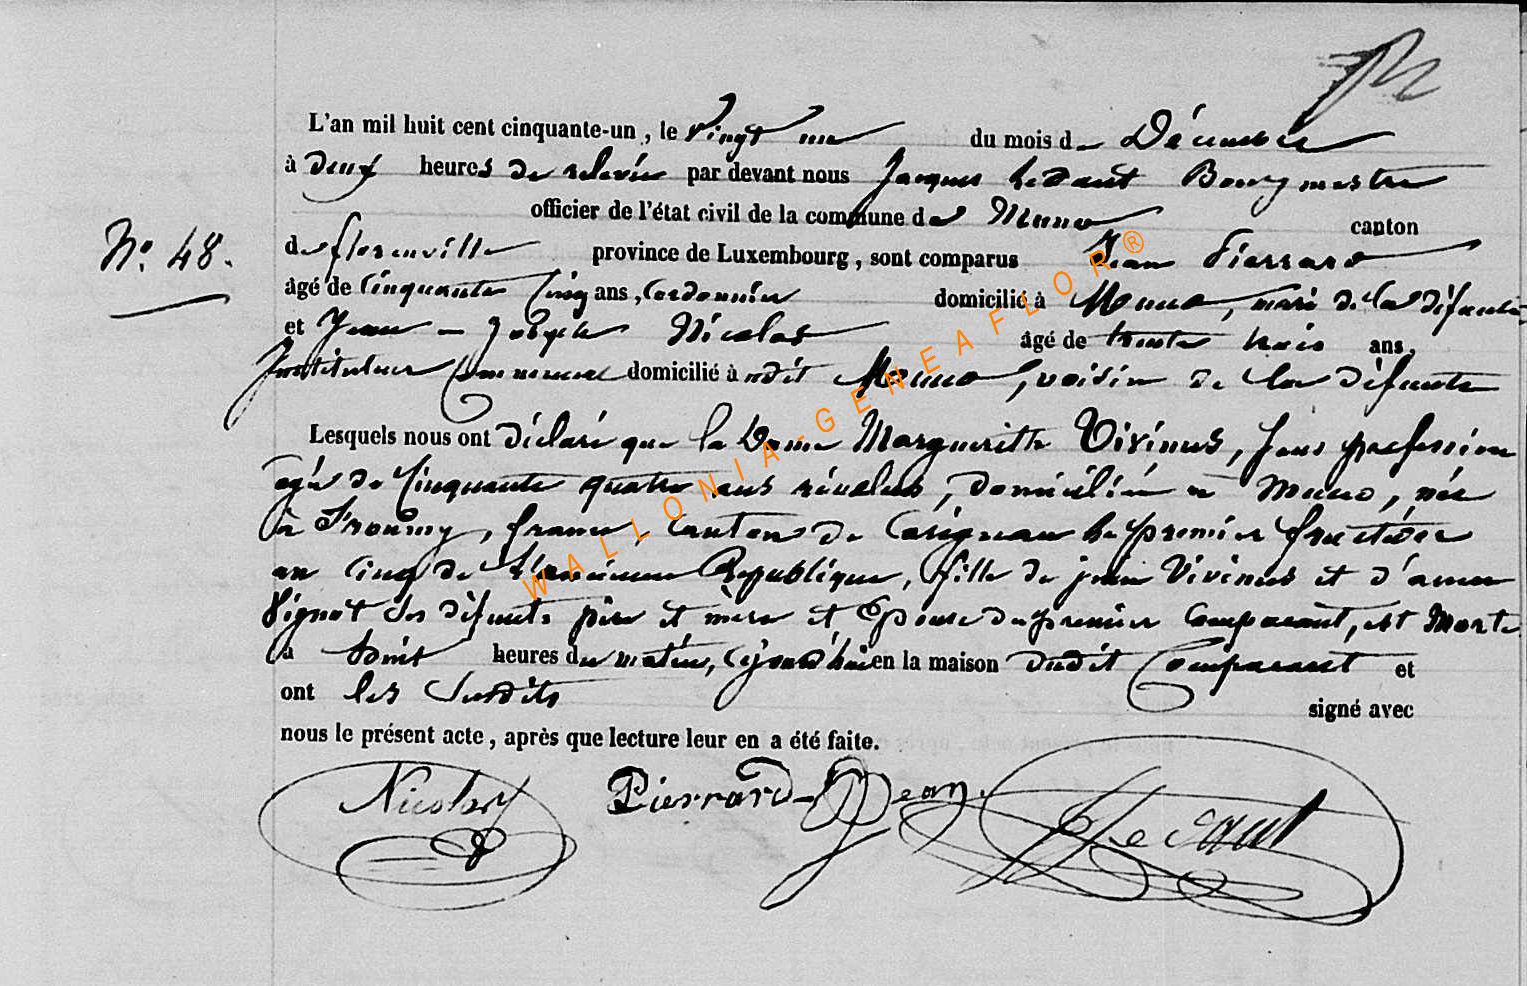 L'an mil huit cent cinquante-un, le Vingt un du mois de Décembre
à deux heures de relevée par devant nous Jacques Ledant Bourgmestre
officier de l'état civil de la commune de Muno canton
N.° 48.
de florenville province de Luxembourg, sont comparus Jean Pierrard
âgé de Cinquante Cinq ans, Cordonnier domicilié à Muno, mari de la défunte
et Jean-Joseph Nicolas âgé de trente trois ans,
Instituteur Communal domicilié à udit Muno, voisin de la défunte
Lesquels nous ont déclaré que la Dame Marguerithe Vivinus, sans profession
agée de Cinquante quatre ans révolus, domiciliée à Muno, née
à Tremmy, france, Canton de Carignan le premier fructidor
an Cinq de l'ancienne République, fille de jean Vivinus et d'anne
Vignot ses défunts père et mère et Epouse du premier Comparant, est Morte
à heures du matin, cejourd'hui en la maison dudit Comparant et
ont les susdits signé avec
nous le présent acte, après que lecture leur en a été faite.
Nicolas Pierrard Jean. Ledant
WALLONIA-GENEAFLOR®